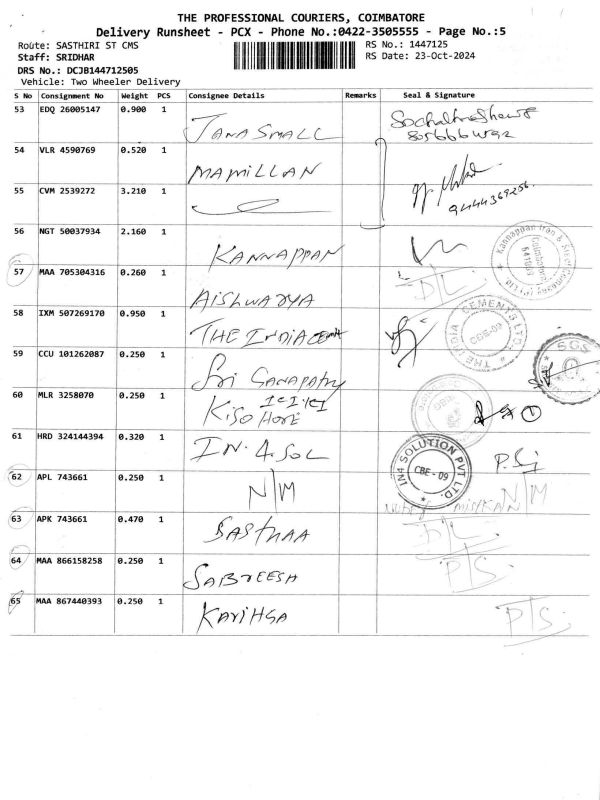 THE PROFESSIONAL COURIERS, COIMBATORE
Delivery Runsheet - PCX - Phone No.:0422-3505555 - Page No.:5
Route: SASTHIRI ST CMS RS No.: 1447125
Staff: SRIDHAR RS Date: 23-Oct-2024
DRS No.: DCJB144712505
Vehicle: Two Wheeler Delivery
S No Consignment No Weight PCS Consignee Details Remarks Seal & Signature
53 EDQ 26005147 0.900 1 JANA SMALL
54 VLR 4590769 0.520 1 MAMILLAN
55 CVM 2539272 3.210 1 9444369256
56 NGT 50037934 2.160 1 KANNAPPAN
57 MAA 705304316 0.260 1 AISHWARYA D/L
58 IXM 507269170 0.950 1 THE INDIA THE INDIA CEMENTS LTD. CBE-09
59 CCU 101262087 0.250 1 Sri GANAPATHY SGS
60 MLR 3258070 0.250 1 KISO
61 HRD 324144394 0.320 1 IN.4.SOL IN4 SOLUTION PVT LTD. CBE - 09
62 APL 743661 0.250 1 N/M N/M
63 APK 743661 0.470 1 SASTHAA D/L
64 MAA 866158258 0.250 1 SABREESH P/S
65 MAA 867440393 0.250 1 KAVIHSA P/S